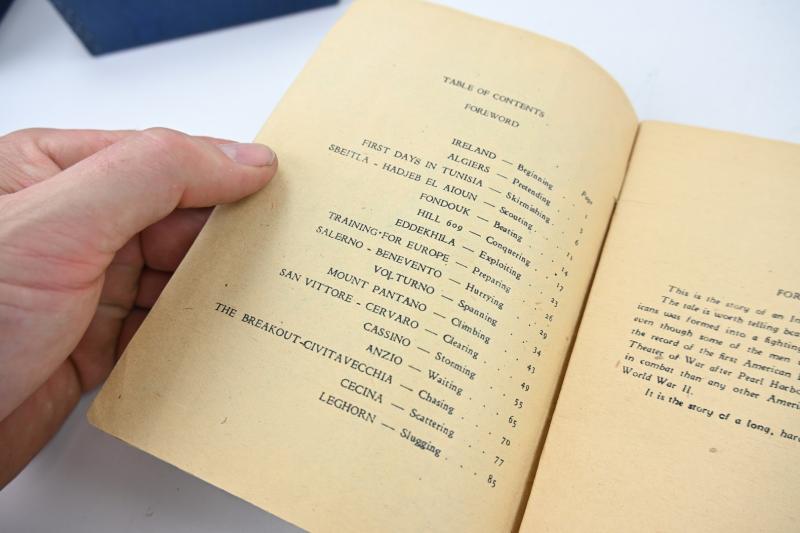 TABLE OF CONTENTS
FOREWORD
Page
IRELAND — Beginning . . 1
ALGIERS — Pretending . . 3
FIRST DAYS IN TUNISIA — Skirmishing . . 6
SBEITLA - HADJEB EL AIOUN — Scouting . . 13
FONDOUK — Beating . .
HILL 609 — Conquering . . 17
EDDEKHILA — Exploiting . . 23
TRAINING FOR EUROPE — Preparing . . 26
SALERNO - BENEVENTO — Hurrying . . 29
VOLTURNO — Spanning . . 34
MOUNT PANTANO — Climbing . . 43
SAN VITTORE - CERVARO — Clearing . . 49
CASSINO — Storming . . 55
ANZIO — Waiting . . 65
THE BREAKOUT-CIVITAVECCHIA — Chasing . . 70
CECINA — Scattering . . 77
LEGHORN — Slugging . . 85
FOR
This is the story of an
The tale is worth telling
icans was formed into a fighting
even though some of the men
the record of the first American
Theater of War after Pearl Harbo
in combat than any other Ameri
World War II.
It is the story of a long, hard